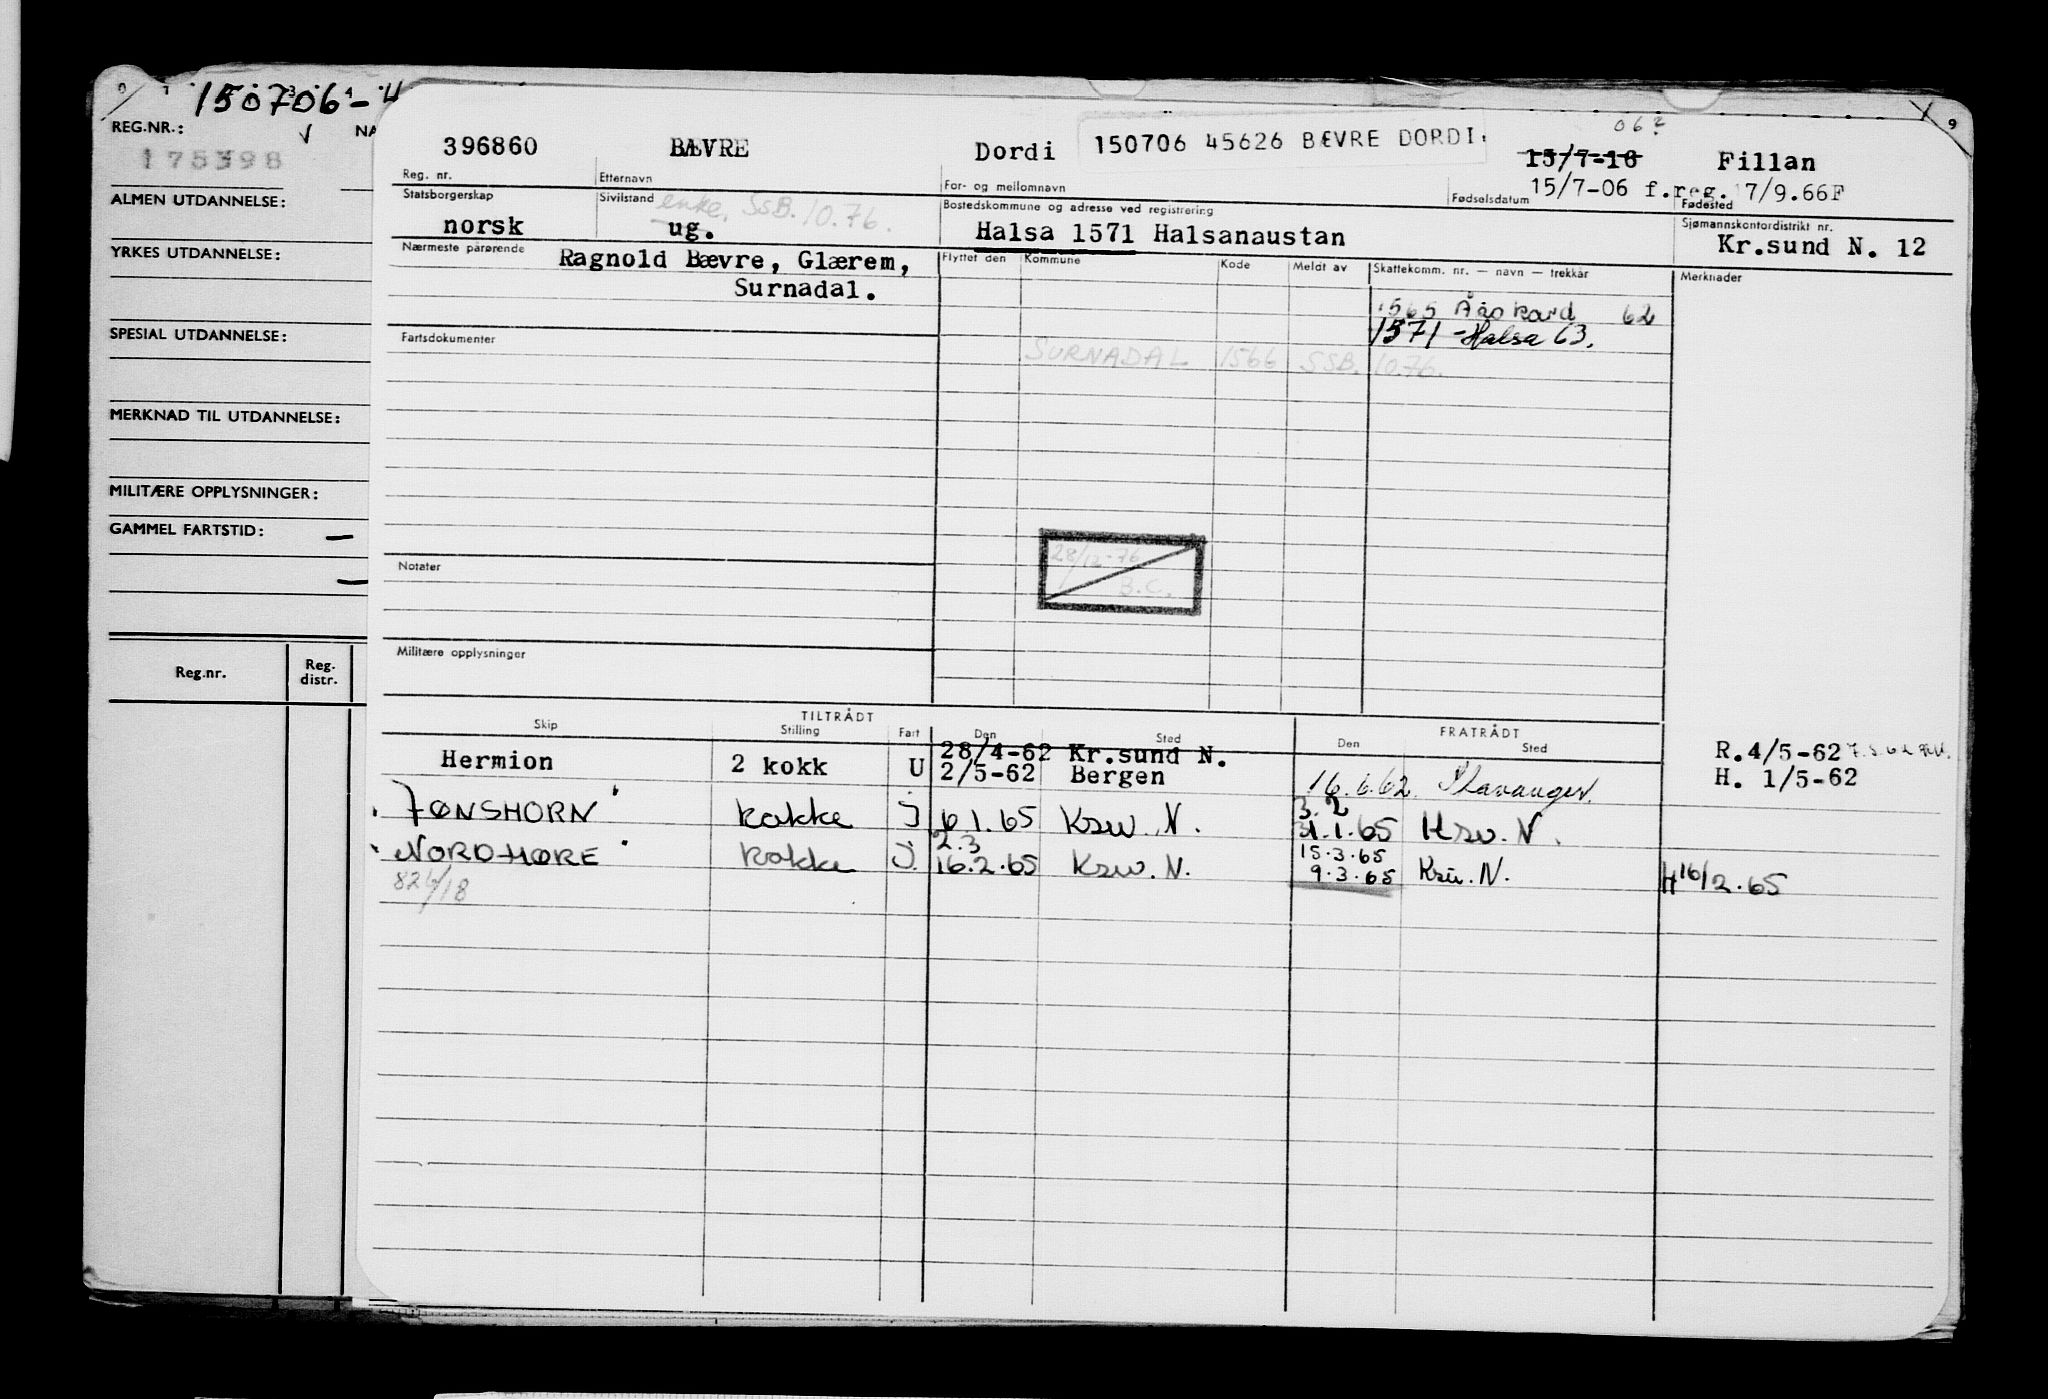 150706-4
REG.NR.:
NA
175398
ALMEN UTDANNELSE:
YRKES UTDANNELSE:
SPESIAL UTDANNELSE:
MERKNAD TIL UTDANNELSE:
MILITÆRE OPPLYSNINGER:
GAMMEL FARTSTID: —
—
Reg.nr.
Reg. distr.
06?
396860 BÆVRE Dordi 150706 45626 BÆVRE DORDI. 15/7-16 Fillan
15/7-06 f.reg. 17/9.66F
Reg. nr. Etternavn For- og mellomnavn Fødselsdatum Fødested
Statsborgerskap Sivilstand enke, SSB. 10.76. Bostedskommune og adresse ved registrering Sjømannskontordistrikt nr.
norsk ug. Halsa 1571 Halsanaustan Kr.sund N. 12
Nærmeste pårørende Ragnold Bævre, Glærem,
Surnadal.
Flyttet den Kommune Kode Meldt av Skattekomm. nr. — navn — trekkår Merknader
1565 Åsskard 62
1571 - Halsa 63.
Fartsdokumenter
SURNADAL 1566 SSB. 10.76.
28/12-76
B.C.
Notater
Militære opplysninger
TILTRÅDT FRATRÅDT
Skip Stilling Fart Den Sted Den Sted
Hermion 2 kokk U 28/4-62 Kr.sund N. R.4/5-62
2/5-62 Bergen 16.6.62 Stavanger. H. 1/5-62
"TØNSHORN" kokke J 6.1.65 Ksu. N. 3.2
31.1.65 Ksu. N.
"NORDMØRE" kokke J. 2.3
16.2.65 Ksu. N. 15.3.65
9.3.65 Ksu. N. H16/2.65
826/18